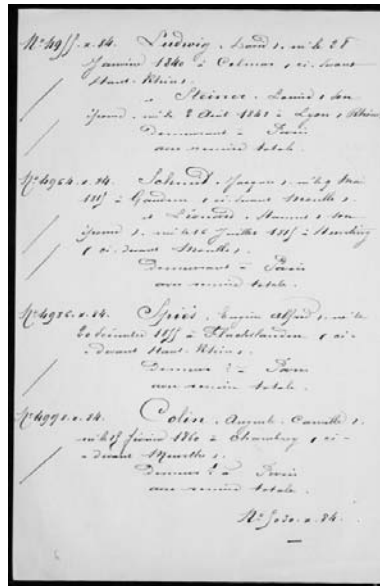 Nº 4955. x. 84. Ludwig, né le 28
Janvier 1840 à Colmar, ci-devant
Haut-Rhin,
Steiner, Louise, son
épouse, née le 2 Août 1841 à Lyon, Rhône
Demeurant à Paris
avec remise totale.
Nº 4964. x. 84. Schmit, Jacques, né le 9 Mai
à ci-devant Moselle,
et Léonard, son
épouse, née le 16 Juillet à
ci-devant Moselle,
Demeurant à Paris
avec remise totale.
Nº 4986. x. 84. Spies, Eugène Alfred, né le
20 Décembre 1855 à Flachslanden, ci-
devant Haut-Rhin,
Demeurt à Paris
avec remise totale.
Nº 4990. x. 84. Colin, Auguste Camille,
né le 15 février 1860 à ci-
devant Meurthe,
Demeurt à Paris
avec remise totale.
Nº 5030. x. 84.